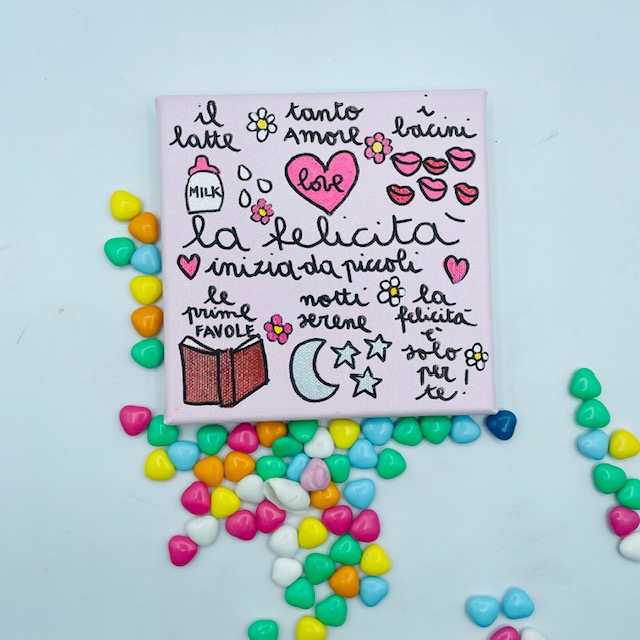 il
latte
tanto
AMORE
i
bacini
MILK
love
la felicità
inizia da piccoli
le
prime
FAVOLE
notti
serene
la
felicità
è
solo
per
te!